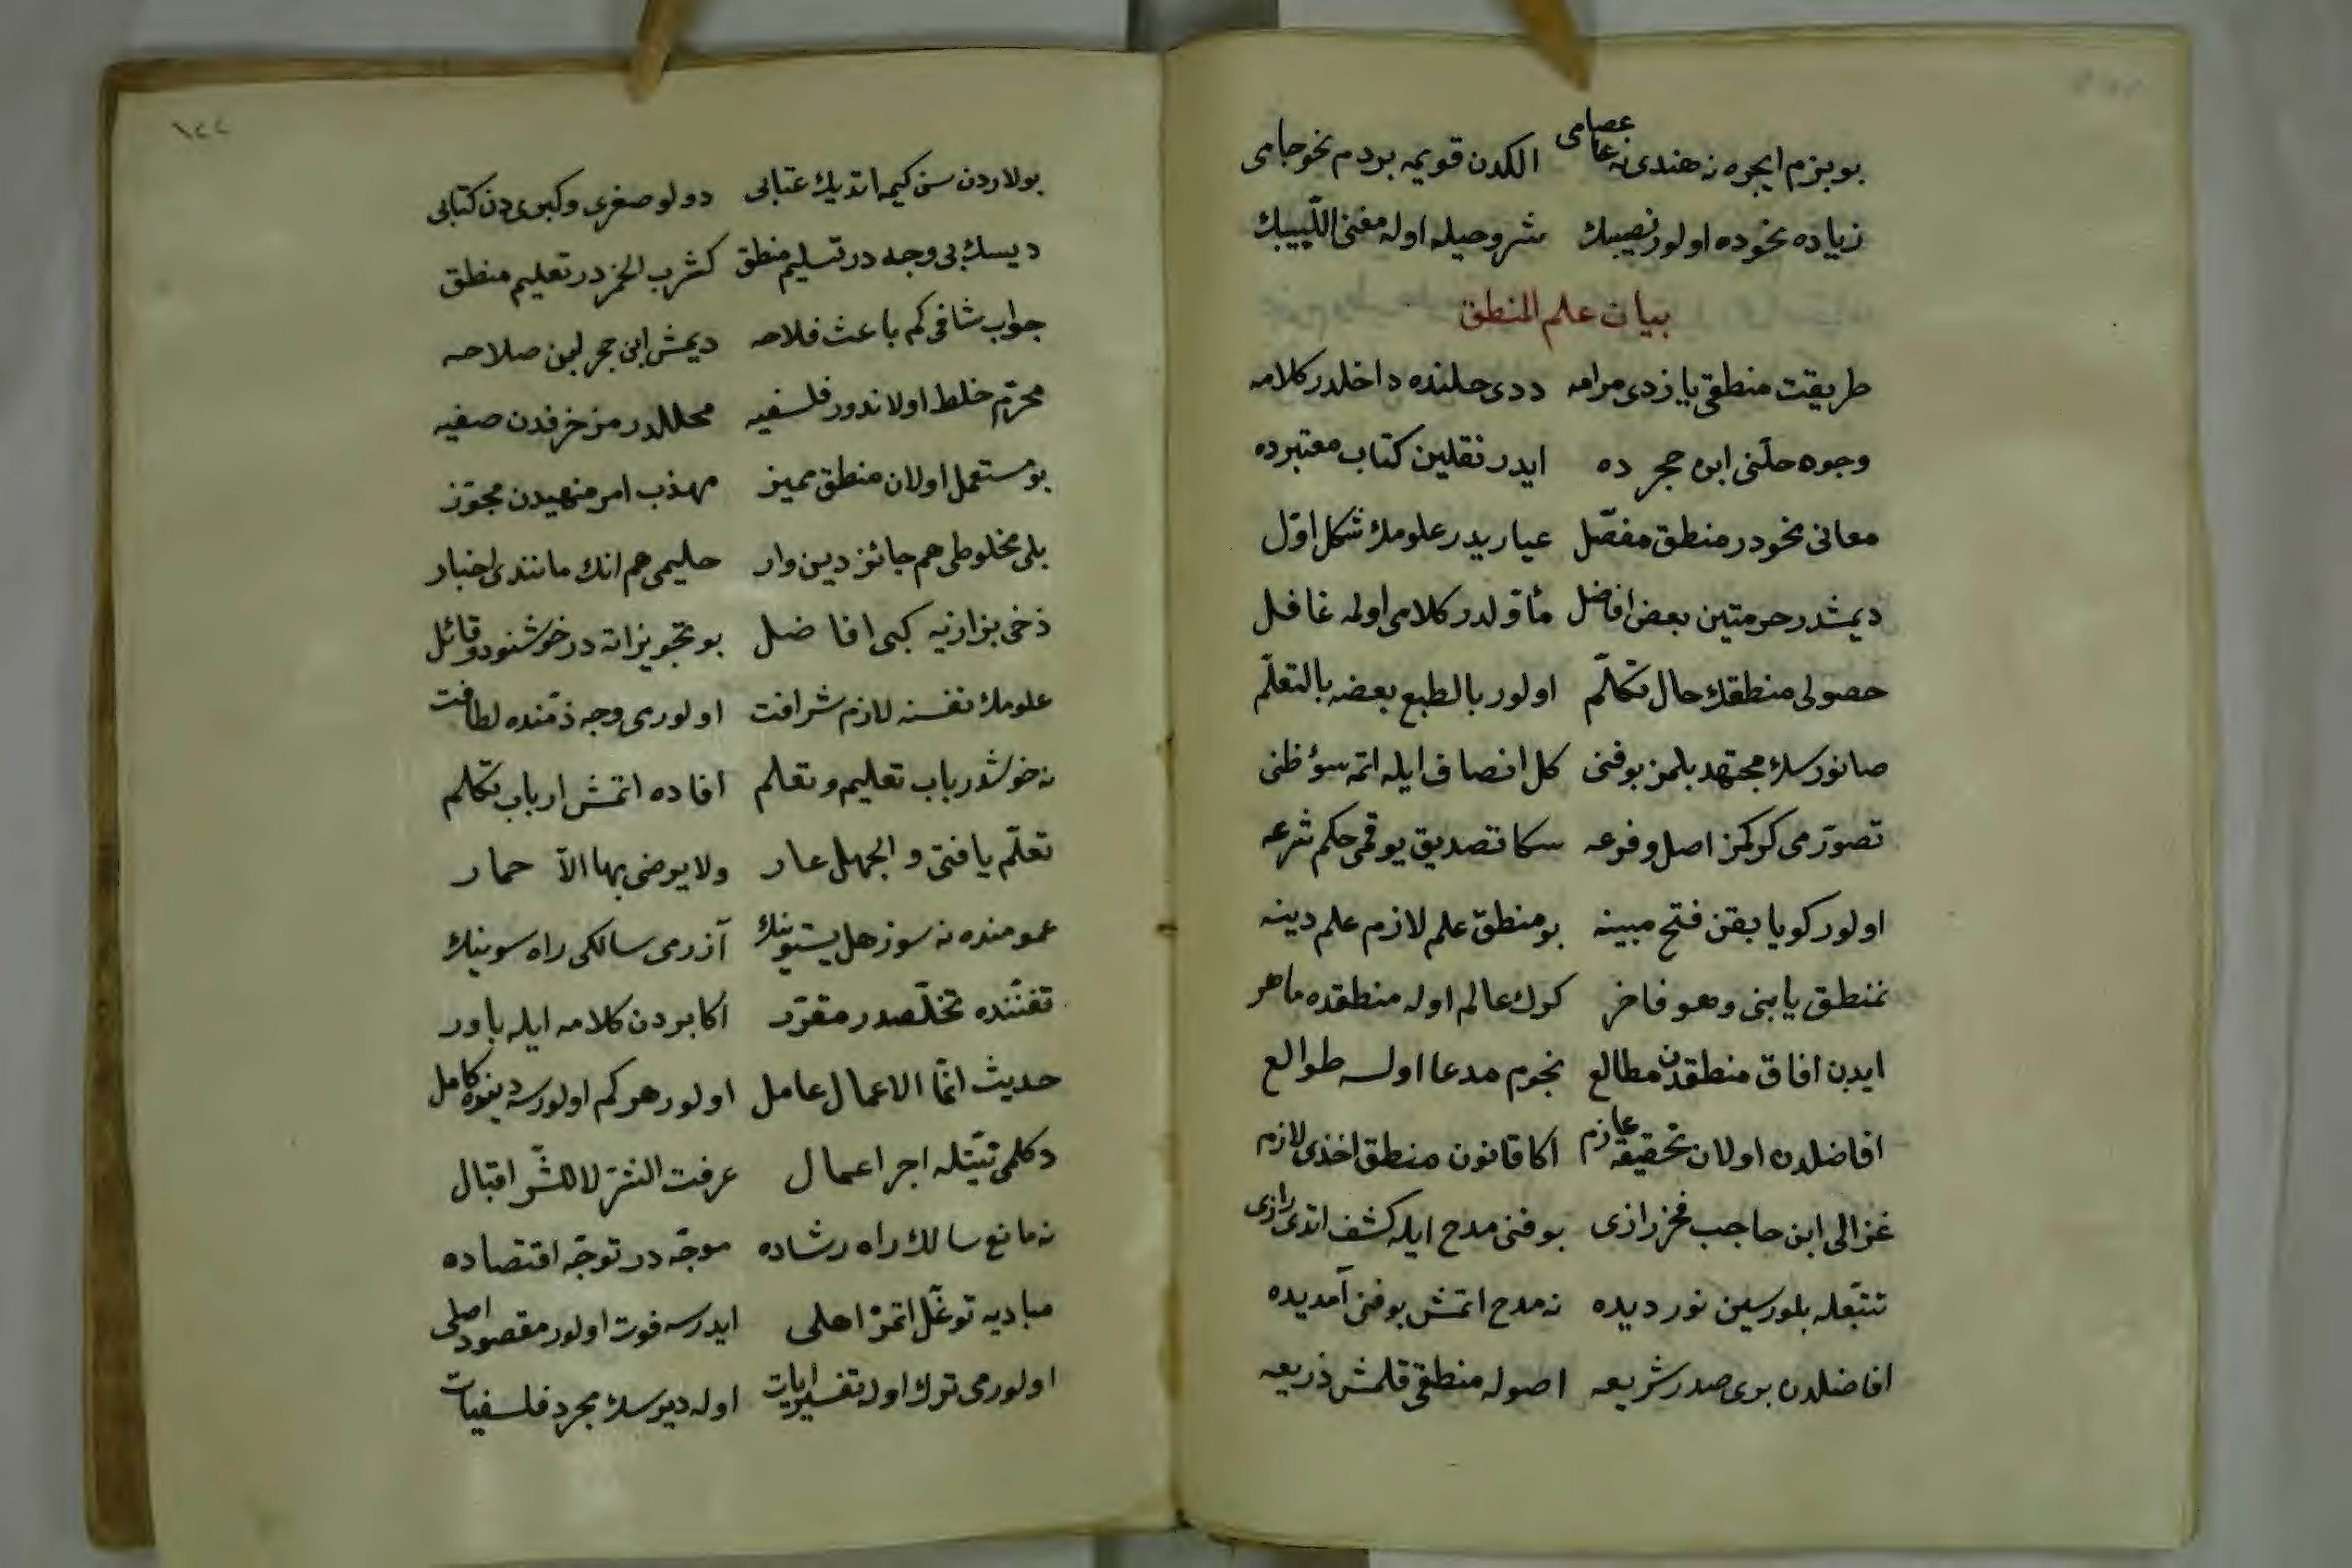 بو بزم ايچره نه هندى نه عصامى الكدن قويمه بردم نحو جامى
زياده نحوده اولور نصيبك شروحيله اوله مغنى اللبيبك
بيان علم المنطق
طريقت منطقى يازدى مرامه ددى حلنده داخلدر كلامه
وجوه حلّنى ابن حجر ده ايدر نقلين كتاب معتبرده
معانى نحودر منطق مفصّل عياريدر علومك شكل اوّل
ديمشدر حرمتين بعض افاضل مأوّلدر كلامى اوله غافل
حصولى منطقك حال تكلّم اولور بالطبع بعضه بالتعلّم
صانورسك مجتهد بلمز بو فنى كل انصاف ايله اتمه سوٴ ظنى
تصوّرمى كركمز اصل و فرعه سكا تصديق يوقمى حكم شرعه
اولور كويا يقن فتح مبينه بو منطق علم لازم علم دينه
تمنطق يا بنى و هو فاخر كرك عالم اوله منطقده ماهر
ايدن افاق منطقدن مطالع نجوم مدعا اولسه طوالع
افاضلدن اولان تحقيقه عازم اكا قانون منطق اخذى لازم
غزالى ابن حاجب فخر رازى بو فنى مدح ايله كشف اتدى رازى
تتبّعله بلورسين نور ديده نه مدح اتمش بو فنى آمديده
افاضلدن برى صدر شريعه اصوله منطقى قلمش ذريعه
١٤٤
بولاردن سن كيمه اتديك عتابى دولو صغرى و كبرى دن كتابى
ديسك بى وجهه در تسليم منطق كشرب الخمر در تعليم منطق
جواب شافى كم باعث فلاحه ديمش ابن حجر لبن صلاحه
محرّم خلط اولاندور فلسفيه محللدر مزخرفدن صفيه
بو مستعمل اولان منطق مميز مهذب امر منهيدن مجوّز
بلى مخلوطى هم جائز دين وار حليمى هم انك مانندى اخبار
ذخى بزازيه كبى افاضل بو تجويزاته در خوشنود و قائل
علومك نفسنه لازم شرافت اولورمى وجه ذمّنده لطافت
نه خوشدر باب تعليم و تعلم افاده اتمش ارباب تكلم
تعلّم يا فتى و الجهل عار ولا يرضى بها الاّ حمار
عمومنده نه سوز هل يستوينك آزرمى سالكى راه سوينك
تفنّنده تخلّصدر مقرّر اكابردن كلامه ايله باور
حديث انّما الاعمال عامل اولور هركم اولورسه دينوه كامل
دكلمى نيّتله اجر اعمال عرفت الشرّ لا للشّر اقبال
نه مانع سالك راه رشاده موجّه در توجّه اقتصاده
مباديه توغّل اتمز اهلى ايدرسه فوت اولور مقصود اصلى
اولورمى ترك اوله تفسير ايات اوله ديرسك مجرد فلسفيات